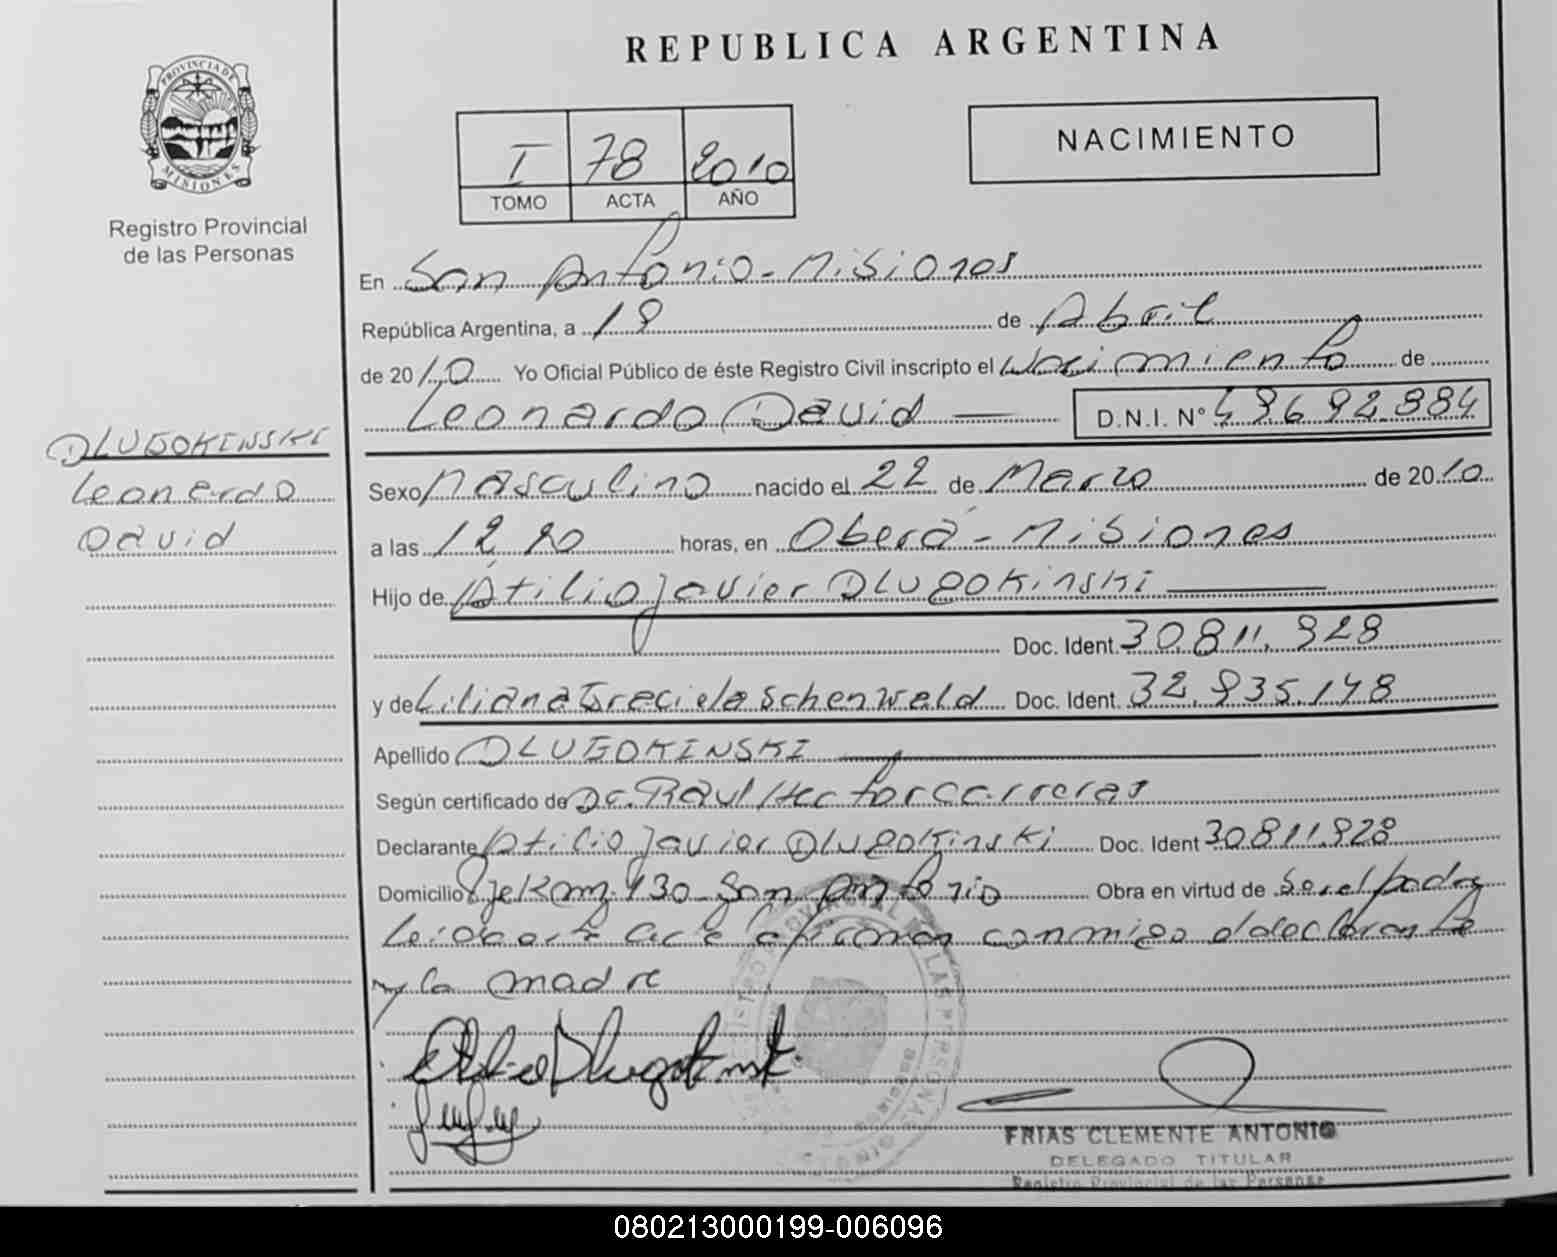 REPUBLICA ARGENTINA
PROVINCIA DE
MISIONES
Registro Provincial
de las Personas
I 78 2010
TOMO ACTA AÑO
NACIMIENTO
En San Antonio - Misiones
República Argentina, a 19 de Abril
de 2010 Yo Oficial Público de éste Registro Civil inscripto el Nacimiento de
Leonardo David D.N.I. Nº 49692884
DLUGOKINSKI
Leonardo
David
Sexo Masculino nacido el 22 de Marzo de 2010
a las 12,20 horas, en Oberá - Misiones
Hijo de Atilio Javier DLUGOKINSKI
Doc. Ident. 30.811.928
y de Liliana Graciela Schenwald Doc. Ident. 32.935.148
Apellido DLUGOKINSKI
Según certificado de Dr. Raul Hector Carreras
Declarante Atilio Javier DLUGOKINSKI Doc. Ident 30811.928
Domicilio Eje Km. 130 San Antonio Obra en virtud de Ser el padre
Leida esta acta firman conmigo el declarante
y la madre
FRIAS CLEMENTE ANTONIO
DELEGADO TITULAR
Registro Provincial de las Personas
080213000199-006096